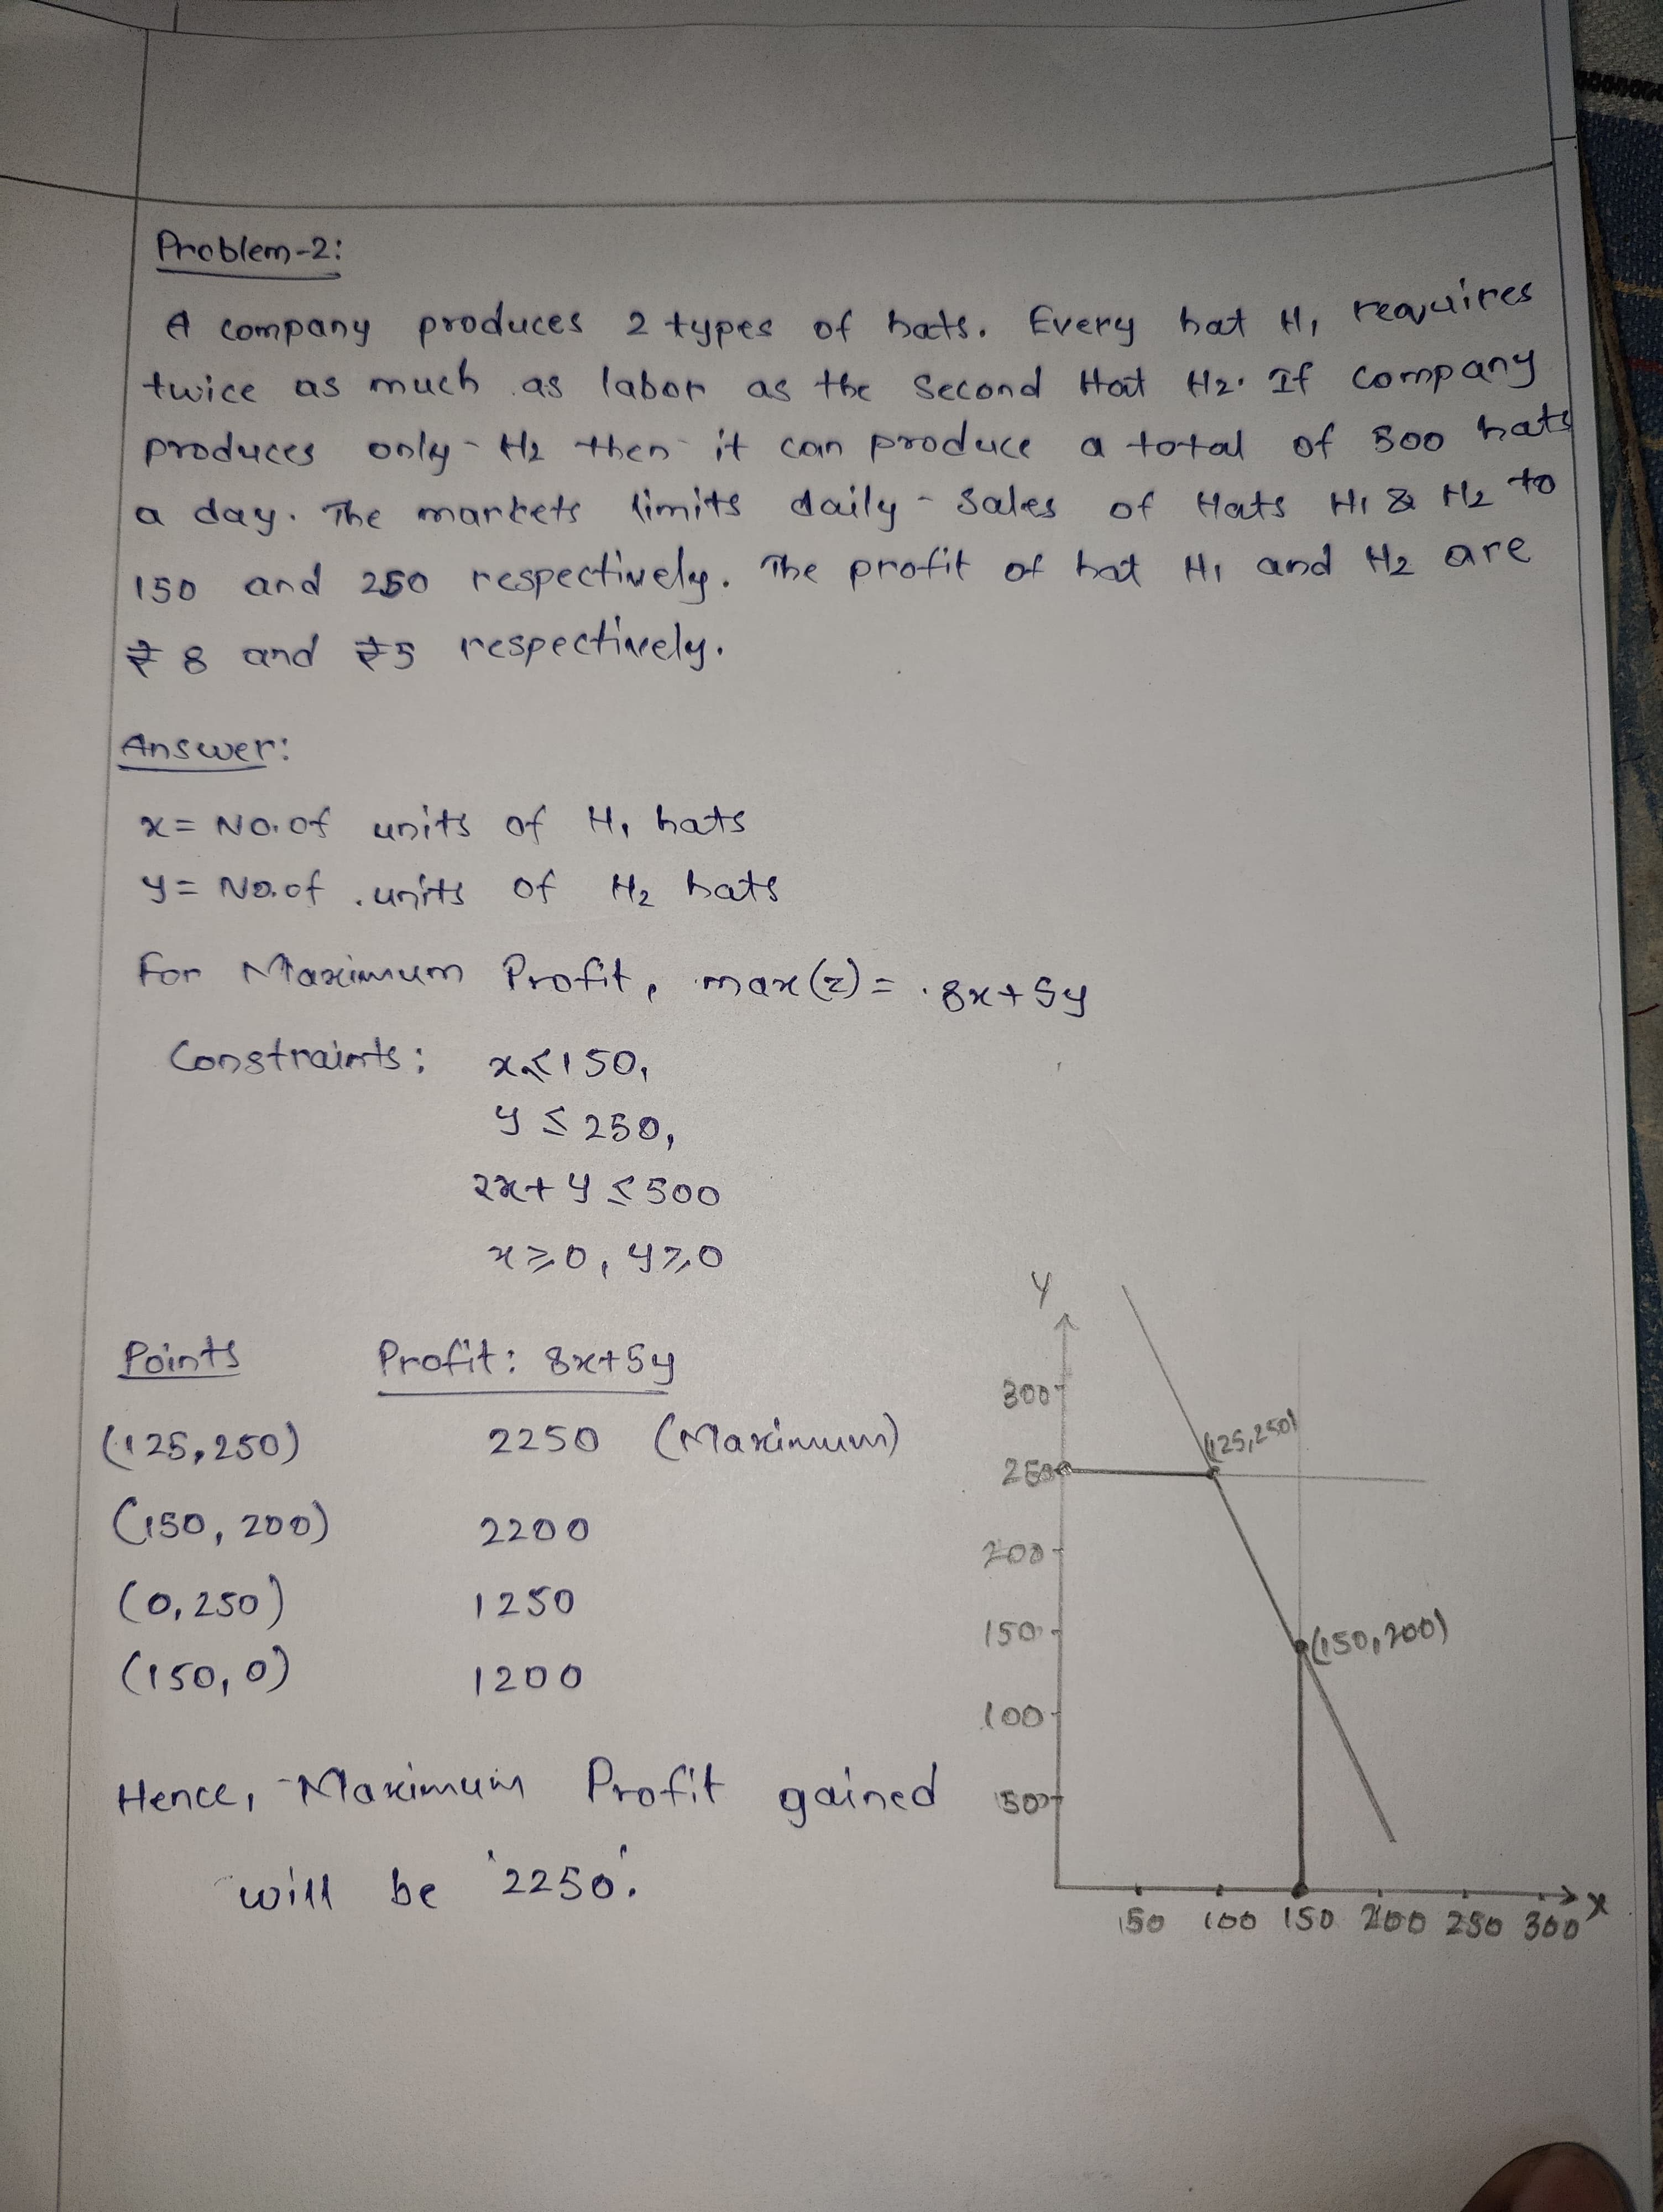 Problem-2:
A company produces 2 types of hats. Every hat H₁ requires
twice as much as labor as the Second Hat H₂. If company
produces only H₂ then it can produce a total of 500 hats
a day. The markets limits daily sales of Hats H₁ & H₂ to
150 and 250 respectively. The profit of hat H₁ and H₂ are
₹ 8 and ₹5 respectively.
Answer:
x = No. of units of H₁ hats
y = No. of units of H₂ hats
For Maximum Profit, max(z) = 8x + 5y
Constraints: x ≤ 150,
y ≤ 250,
2x + y ≤ 500
x ≥ 0, y ≥ 0
Points Profit: 8x+5y
(125,250) 2250 (Maximum)
(150, 200) 2200
(0, 250) 1250
(150, 0) 1200
Hence, Maximum Profit gained
will be '2250'.
y
300
(125,250)
250
200
150
(150,200)
100
50
50 100 150 200 250 300 x